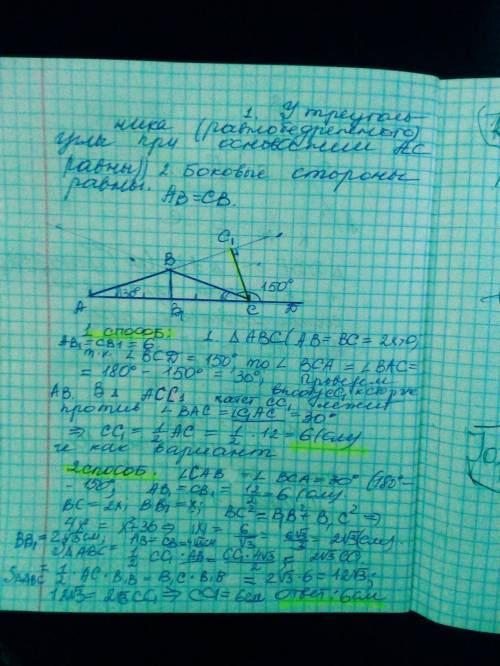 1. У треуголь-
ника (равнобедренного)
углы при основании AC
равны) 2. Боковые стороны
равны.
AB=CB.
C₁
B
150°
A
30°
B₁
C
D
1 способ:
1. △ABC (AB=BC=2x>0,
AB₁=CB₁=6
т.к. ∠BCD=150°, то ∠BCA=∠BAC=
=180°-150°=30°, Проведем
AB. В △ACC₁ катет CC₁ лежит
против ∠BAC=∠C₁AC=30°
⇒ CC₁=½AC=½·12=6(см)
как вариант
2 способ. ∠CAB=∠BCA=30° (180°-
-150°, AB₁=CB₁=12/2=6(см)
BC=2x, BB₁=x, BC²=B₁B²+B₁C² ⇒
4x²=x²+36 ⇒ x=6/√3=6√3/3=2√3(см)
BB₁=2√3см,
S△ABC=½CC₁·AB=CC₁·4√3/2=2√3CC₁
S△ABC=½·AC·B₁B=B₁C·B₁B=2√3·6=12√3;
12√3=2√3CC₁ ⇒ CC₁=6см Ответ: 6см